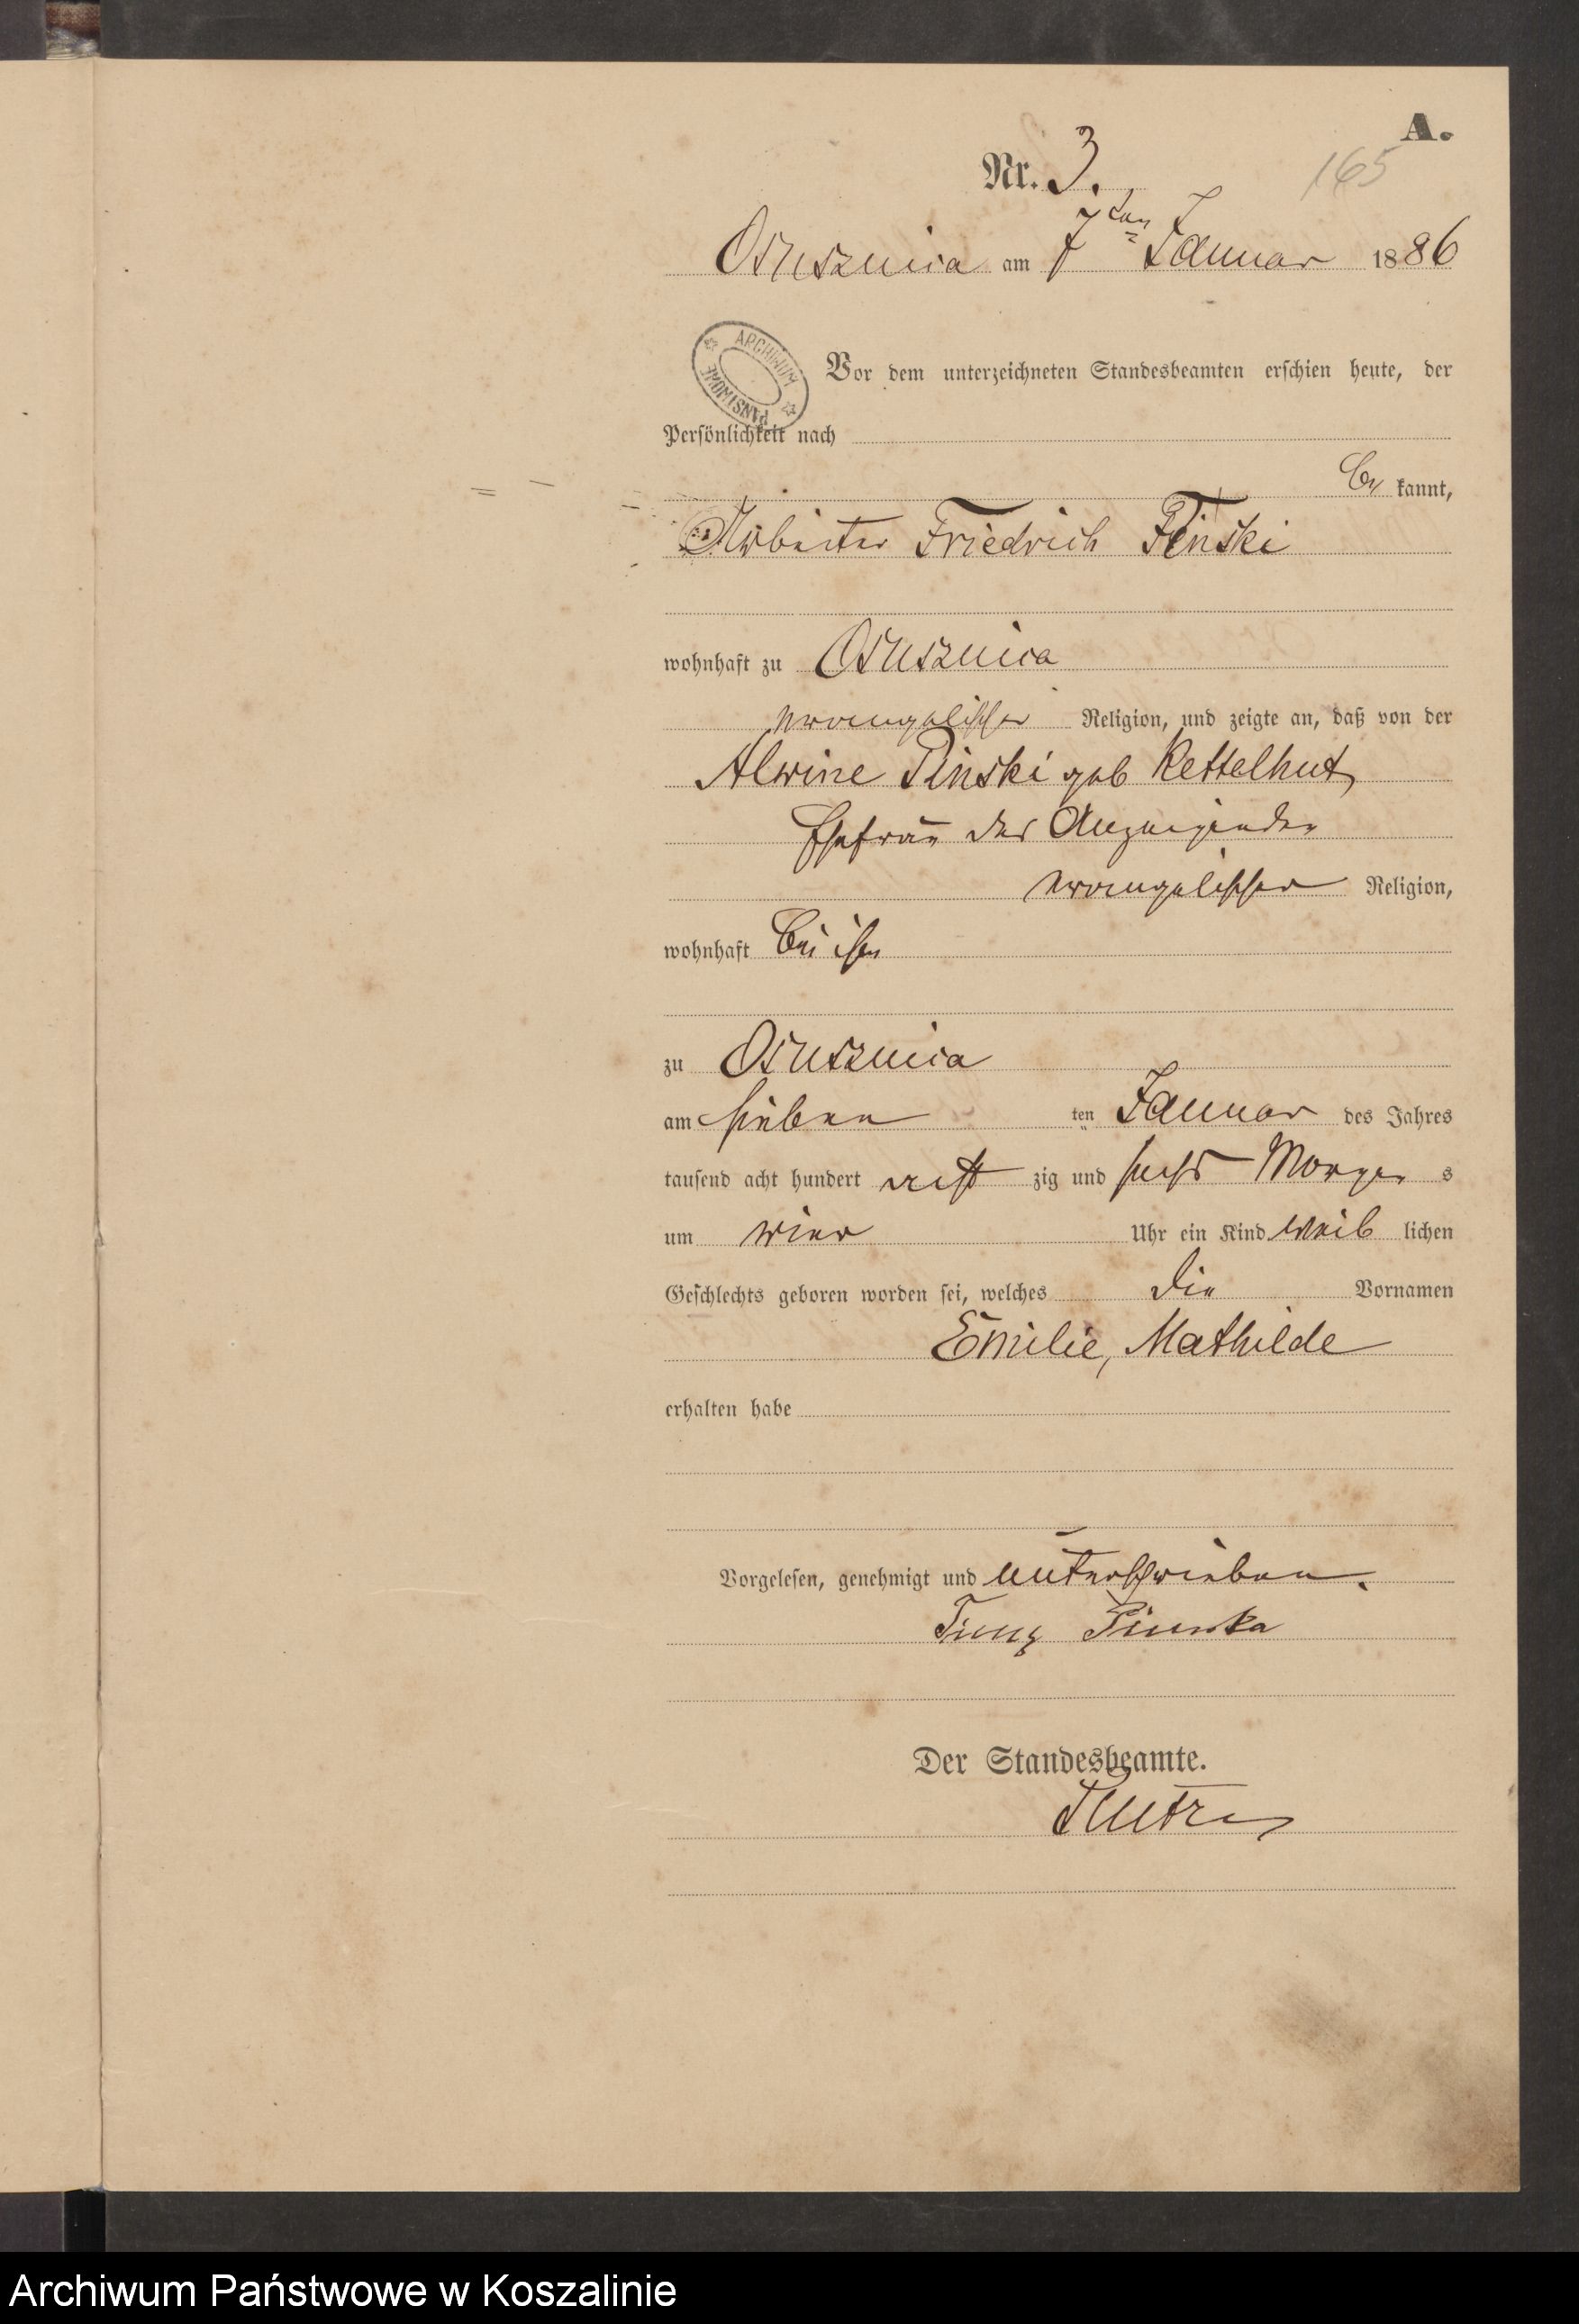 A.
Nr. 3.
165
Osusznica am 7ten Januar 1886
ARCHIWUM PAŃSTWOWE
Vor dem unterzeichneten Standesbeamten erschien heute, der
Persönlichkeit nach
be kannt,
Arbeiter Friedrich Pinski
wohnhaft zu Osusznica
evangelischer Religion, und zeigte an, daß von der
Alwine Pinski geb Kettelhut,
Ehefrau des Anzeigenden
evangelischer Religion,
wohnhaft bei ihm
zu Osusznica
am sieben ten Januar des Jahres
tausend acht hundert acht zig und sechs Morgen s
um vier Uhr ein Kind weib lichen
Geschlechts geboren worden sei, welches die Vornamen
Emilie, Mathilde
erhalten habe
Vorgelesen, genehmigt und unterschrieben.
Der Standesbeamte.
Archiwum Państwowe w Koszalinie